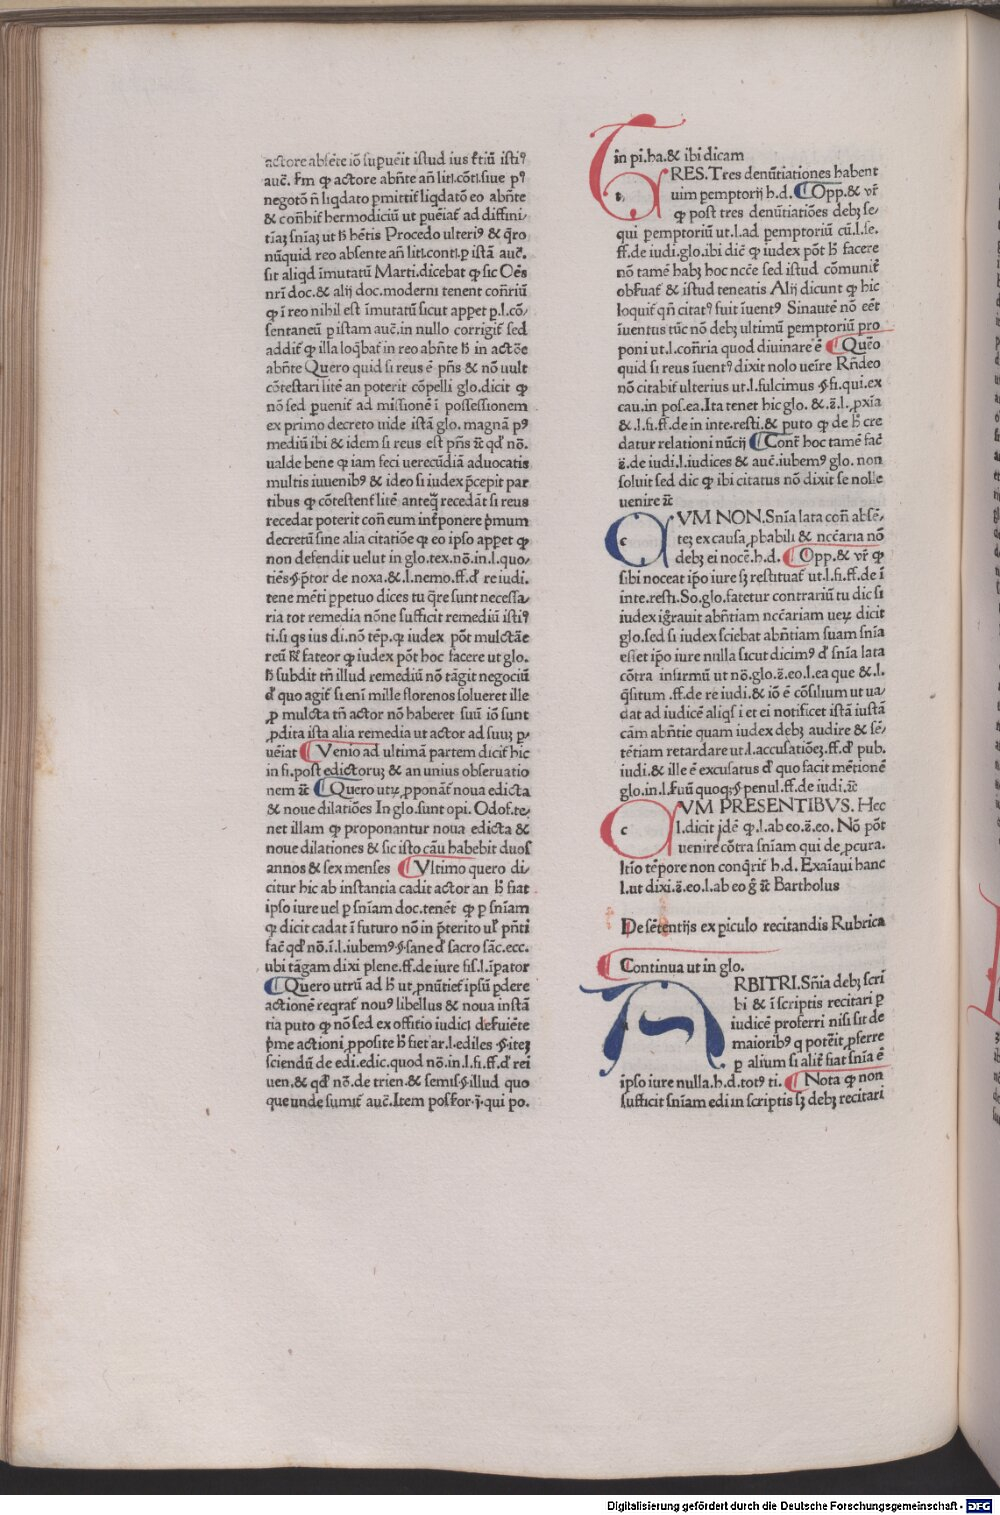 actore absẽte iõ supuẽit istud ius t̃tiũ istiꝰ
auc̃. Fm ꝙ actore abñte añ liti.cõti.siue pꝰ
negotõ ñ liqdato pmittit̃ liqdatõ eo abñte
& coñbit̃ hermodiciũ ut puẽiat̃ ad diffini/
tiãꝫ sniãꝫ ut h̃ hẽtis Procedo ulteriꝰ & q̃ro
nũquid reo absente añ liti.conti.p istã auc̃.
sit aliqd ĩmutatũ Marti.dicebat ꝙ sic Oẽs
nr̃i doc.& alij doc.moderni tenent coñriũ
ꝙ ĩ reo nihil est ĩmutatũ sicut appet p.l.cõ/
sentaneũ p istam auc̃.in nullo corrigit̃ sed
addit̃ ꝙ illa loq̃bat̃ in reo abñte h̃ in actõe
abñte Quero quid si reus ẽ pñs & nõ uult
cõtestari litẽ an poterit cõpelli glo.dicit ꝙ
nõ sed puenit̃ ad missionẽ ĩ possessionem
ex primo decreto uide istã glo. magnã pꝰ
mediũ ibi & idem si reus est pñs ⁊c̃ qd̃ nõ.
ualde bene ꝙ iam feci uerecũdiã aduocatis
multis iuuenibꝰ & ideo si iudex p̃cepit par
tibus ꝙ cõtestent̃ litẽ anteq̃ recedãt si reus
recedat poterit coñ eum int̃ponere p̃mum
decretũ sine alia citatiõe ꝙ eo ipso appet ꝙ
non defendit uelut in glo.tex.nõ.in.l.quo/
tiẽs.§.p̃tor de noxa.&.l.nemo.ff.d̃ re iudi.
tene mẽti ppetuo dices tu q̃re sunt necessa/
ria tot remedia nõne sufficit remediũ istiꝰ
ti.si qs ius di.nõ tẽp.ꝙ iudex põt mulctãe
reũ fateor ꝙ iudex põt hoc facere ut glo.
h̃ subdit tñ illud remediũ nõ tãgit negociũ
d̃ quo agit̃ si enĩ mille florenos solueret ille
ꝓ mulcta tñ actor nõ haberet suũ iõ sunt
ꝓdita ista alia remedia ut actor ad suuꝫ p/
uẽiat Venio ad ultimã partem dicit̃ hic
in fi.post edictoruꝫ & an unius obseruatio
nem ⁊c̃ Quero utꝝ ꝓponãt̃ noua edicta
& noue dilatiões In glo.sunt opi. Odof.te/
net illam ꝙ proponantur noua edicta &
noue dilationes & sic isto cãu habebit duos
annos & sex menses Vltimo quero di/
citur hic ab instantia cadit actor an h̃ fiat
ipso iure uel p sniam doc.tenẽt ꝙ p sniam
ꝙ dicit cadat ĩ futuro nõ in p̃terito ul̃ pñti
fac̃ qd̃ nõ.ĩ.l.iubemꝰ.§.sane d̃ sacro sãc.ecc.
ubi tãgam dixi plene.ff.de iure fis.l.ĩpator
Quero utrũ ad h̃ ut ꝓnũtiet̃ ipsũ pdere
actionẽ reqrat̃ nouꝰ libellus & noua instã
tia puto ꝙ nõ sed ex offitio iudicį defuiẽte
p̃me actioni ꝓposite h̃ fiet ar.l.ediles.§.iteꝫ
sciendũ de edi.edic.quod nõ.in.l.fi.ff.d̃ rei
uen.& qd̃ nõ.de trien.& semis.§.illud quo
que unde sumit̃ auc̃.Item possor.ꝭ.qui po.
in pi.ha.& ibi dicam
TRES.Tres denũtiationes habent
uim pemptorij h.d. Opp.& ur̃
ꝙ post tres denũtiatiões debꝫ se/
qui pemptoriũ ut.l.ad pemptoriũ cũ.l.se.
ff.de iudi.glo.ibi dic̃ ꝙ iudex põt h̃ facere
nõ tamẽ habꝫ hoc ncc̃e sed istud cõmunit̃
obseruat̃ & istud teneatis Alij dicunt ꝙ hic
loquit̃ qñ citatꝰ fuit ĩuentꝰ Sinautẽ nõ eẽt
ĩuentus tũc nõ debꝫ ultimũ pemptoriũ pro
poni ut.l.coñria quod diuinare ẽ Quẽo
quid si reus ĩuentꝰ dixit nolo ueĩre Rñdeo
nõ citabit̃ ulterius ut.l.fulcimus.§.fi.qui.ex
cau.in pos.ea.Ita tenet hic glo. &.s̃.l. ꝓxĩa
&.l.fi.ff.de in inte.resti.& puto ꝙ de h̃ cre
datur relationi nũcij Cont̃ hoc tamẽ fac̃
s̃.de iudi.l.iudices & auc̃.iubemꝰ glo. non
soluit sed dic ꝙ ibi citatus nõ dixit se nolle
uenire ⁊c̃
CVM NON.Snĩa lata coñ absẽ/
teꝫ ex causa ꝓbabili & ncc̃aria nõ
debꝫ ei nocẽ.h.d. Opp.& ur̃ ꝙ
sibi noceat ip̃o iure sꝫ restituat̃ ut.l.fi.ff.de ĩ
inte.resti.So.glo.fatetur contrariũ tu dic si
iudex ig̃rauit abñtiam ncc̃ariam ueꝝ dicit
glo.sed si iudex sciebat abñtiam suam snĩa
esset ip̃o iure nulla sicut dicimꝰ d̃ snĩa lata
cõtra insirmũ ut nõ.glo.s̃.eo.l.ea que &.l.
q̃situm .ff.de re iudi.& iõ ẽ cõsilium ut ua/
dat ad iudicẽ aliqs i et ei notificet istã iustã
cãm abñtie quam iudex debꝫ audire & sẽ/
tẽtiam retardare ut.l.accusatiõeꝫ.ff.d̃ pub.
iudi.& ille ẽ excusatus d̃ quo facit mẽtionẽ
glo.in.l.s̃uũ quoqꝫ.§.penul.ff.de iudi.⁊c̃
CVM PRESENTIBVS. Hec
l.dicit įdẽ ꝙ.l.ab eo.s̃.eo. Nõ põt
uenire cõtra sniam qui de ꝓcura.
litio tẽpore non conq̃rit̃ h.d. Exaĩaui hanc
l.ut dixi.s̃.eo.l.ab eo g̃ ⁊c̃ Bartholus
De sẽtentijs ex piculo recitandis Rubrica
Continua ut in glo.
ARBITRI.Snĩa debꝫ scri
bi & ĩ scriptis recitari p
iudicẽ proferri nisi sit de
maioribꝰ q potẽit ꝓferre
p alium si alit̃ fiat snĩa ẽ
ipso iure nulla.h.d.totꝰ ti. Nota ꝙ non
sufficit sniam edi in scriptis sꝫ debꝫ recitari
Digitalisierung gefördert durch die Deutsche Forschungsgemeinschaft - DFG